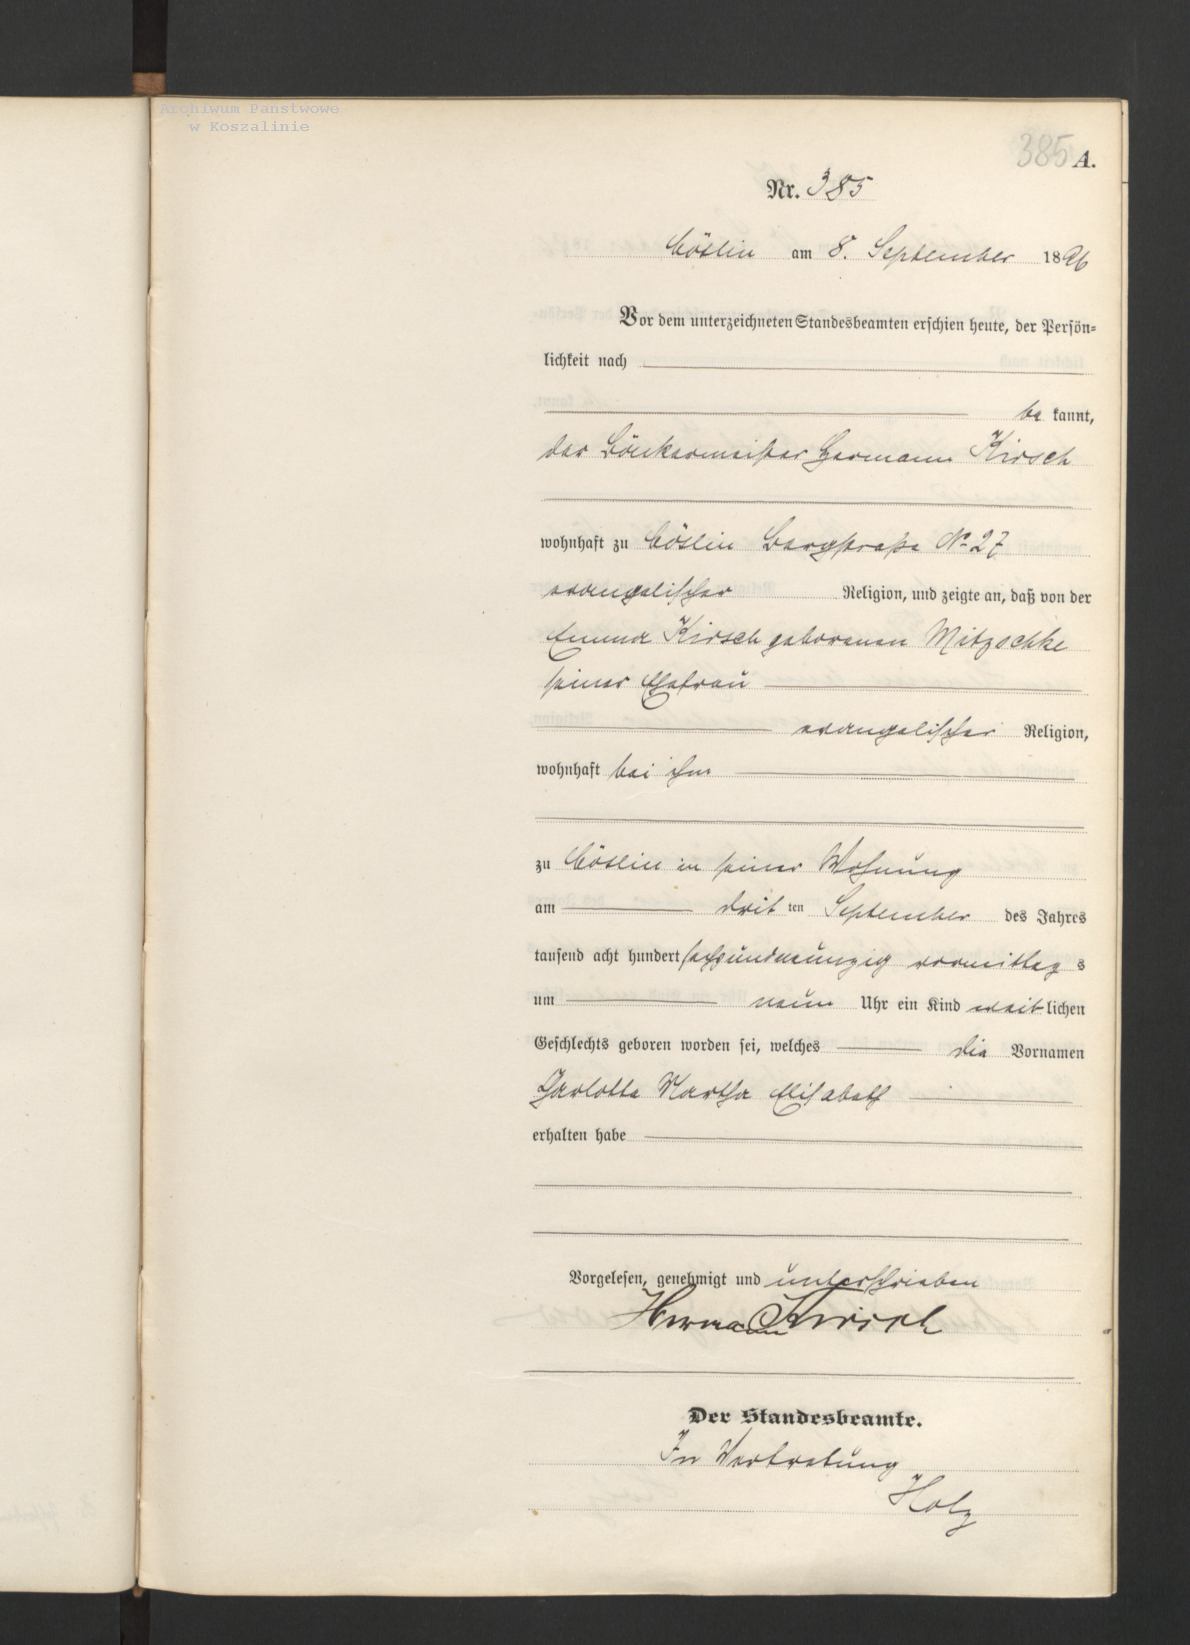 Archiwum Państwowe
w Koszalinie
385 A.
Nr. 385
Cöslin am 8. September 1896
Vor dem unterzeichneten Standesbeamten erschien heute, der Persön-
lichkeit nach
be kannt,
der Böttchermeister Hermann Kirsch
wohnhaft zu Cöslin Bergstraße No 27
evangelischer Religion, und zeigte an, daß von der
Emma Kirsch geborenen Mitzschke
seiner Ehefrau
evangelischer Religion,
wohnhaft bei ihm
zu Cöslin in seiner Wohnung
am drit ten September des Jahres
tausend acht hundert sechsundneunzig vormittag s
um neun Uhr ein Kind weib lichen
Geschlechts geboren worden sei, welches die Vornamen
Charlotte Martha Elisabeth
erhalten habe
Vorgelesen, genehmigt und unterschrieben
Hermann Kirsch
Der Standesbeamte.
In Vertretung
Holz